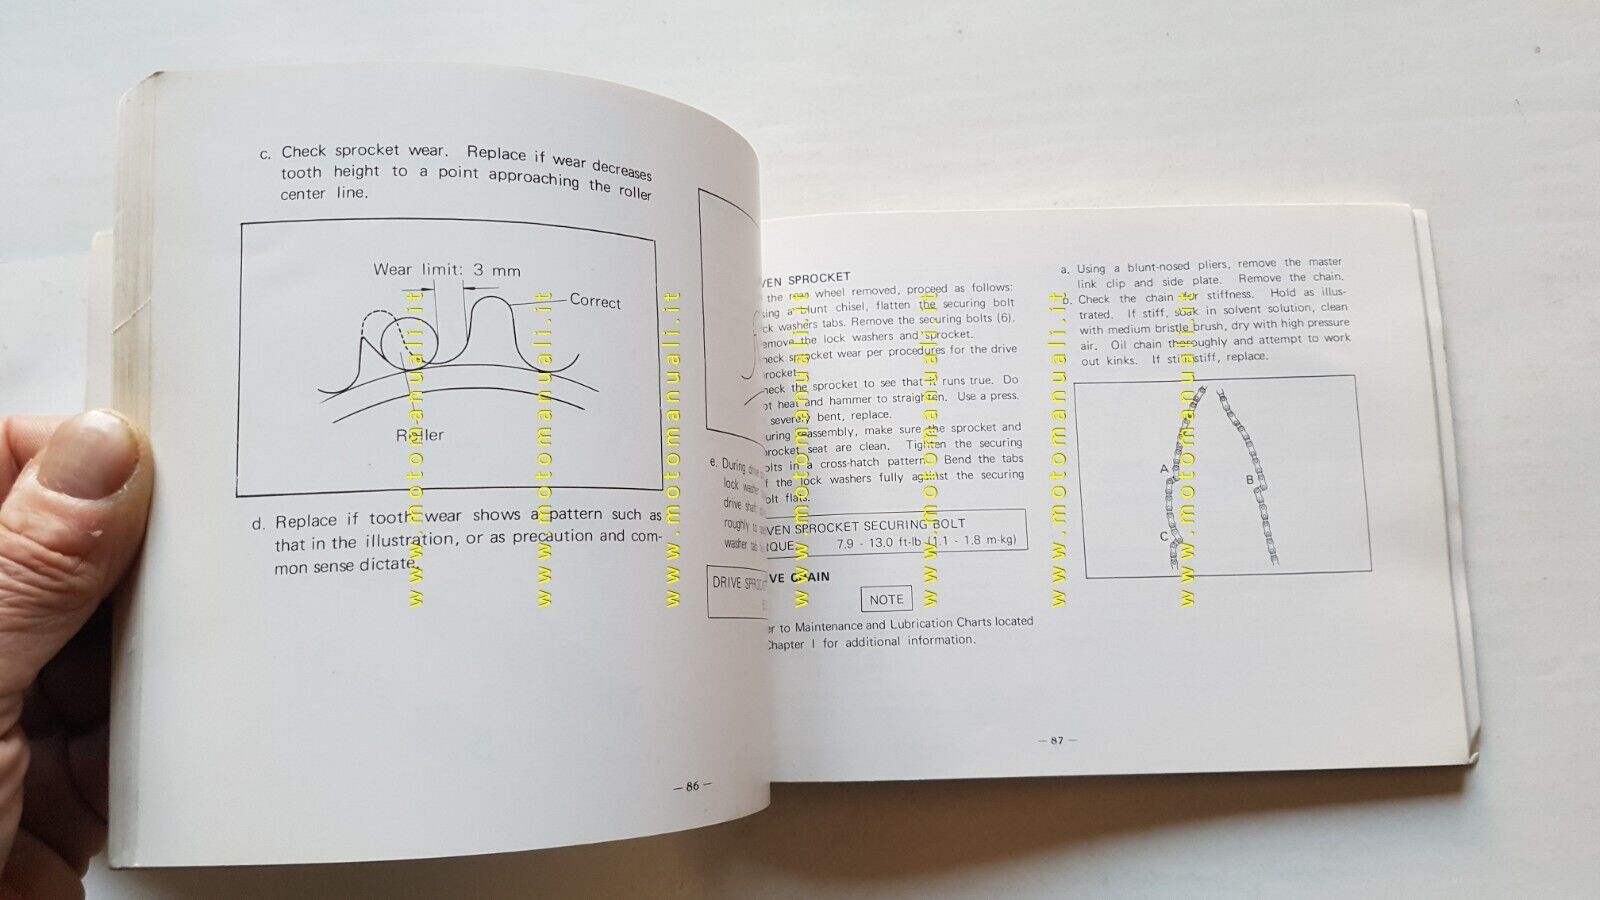 c. Check sprocket wear. Replace if wear decreases
tooth height to a point approaching the roller
center line.
Wear limit: 3 mm
Correct
Roller
d. Replace if tooth wear shows a pattern such as
that in the illustration, or as precaution and com-
mon sense dictate.
— 86 —
e. During
lock
drive
roughly to
washer tab
DRIVE
VEN SPROCKET
the rear wheel removed, proceed as follows:
sing a blunt chisel, flatten the securing bolt
ck washers tabs. Remove the securing bolts (6).
emove the lock washers and sprocket.
heck sprocket wear per procedures for the drive
rocket.
heck the sprocket to see that it runs true. Do
ot heat and hammer to straighten. Use a press.
severely bent, replace.
uring reassembly, make sure the sprocket and
rocket seat are clean. Tighten the securing
olts in a cross-hatch pattern. Bend the tabs
f the lock washers fully against the securing
olt flats.
VEN SPROCKET SECURING BOLT
QUE 7.9 - 13.0 ft-lb (1.1 - 1.8 m-kg)
VE CHAIN
NOTE
er to Maintenance and Lubrication Charts located
Chapter I for additional information.
a. Using a blunt-nosed pliers, remove the master
link clip and side plate. Remove the chain.
b. Check the chain for stiffness. Hold as illus-
trated. If stiff, soak in solvent solution, clean
with medium bristle brush, dry with high pressure
air. Oil chain thoroughly and attempt to work
out kinks. If still stiff, replace.
A
B
C
— 87 —
www.motomanuali.it
www.motomanuali.it
www.motomanuali.it
www.motomanuali.it
www.motomanuali.it
www.motomanuali.it
www.motomanuali.it